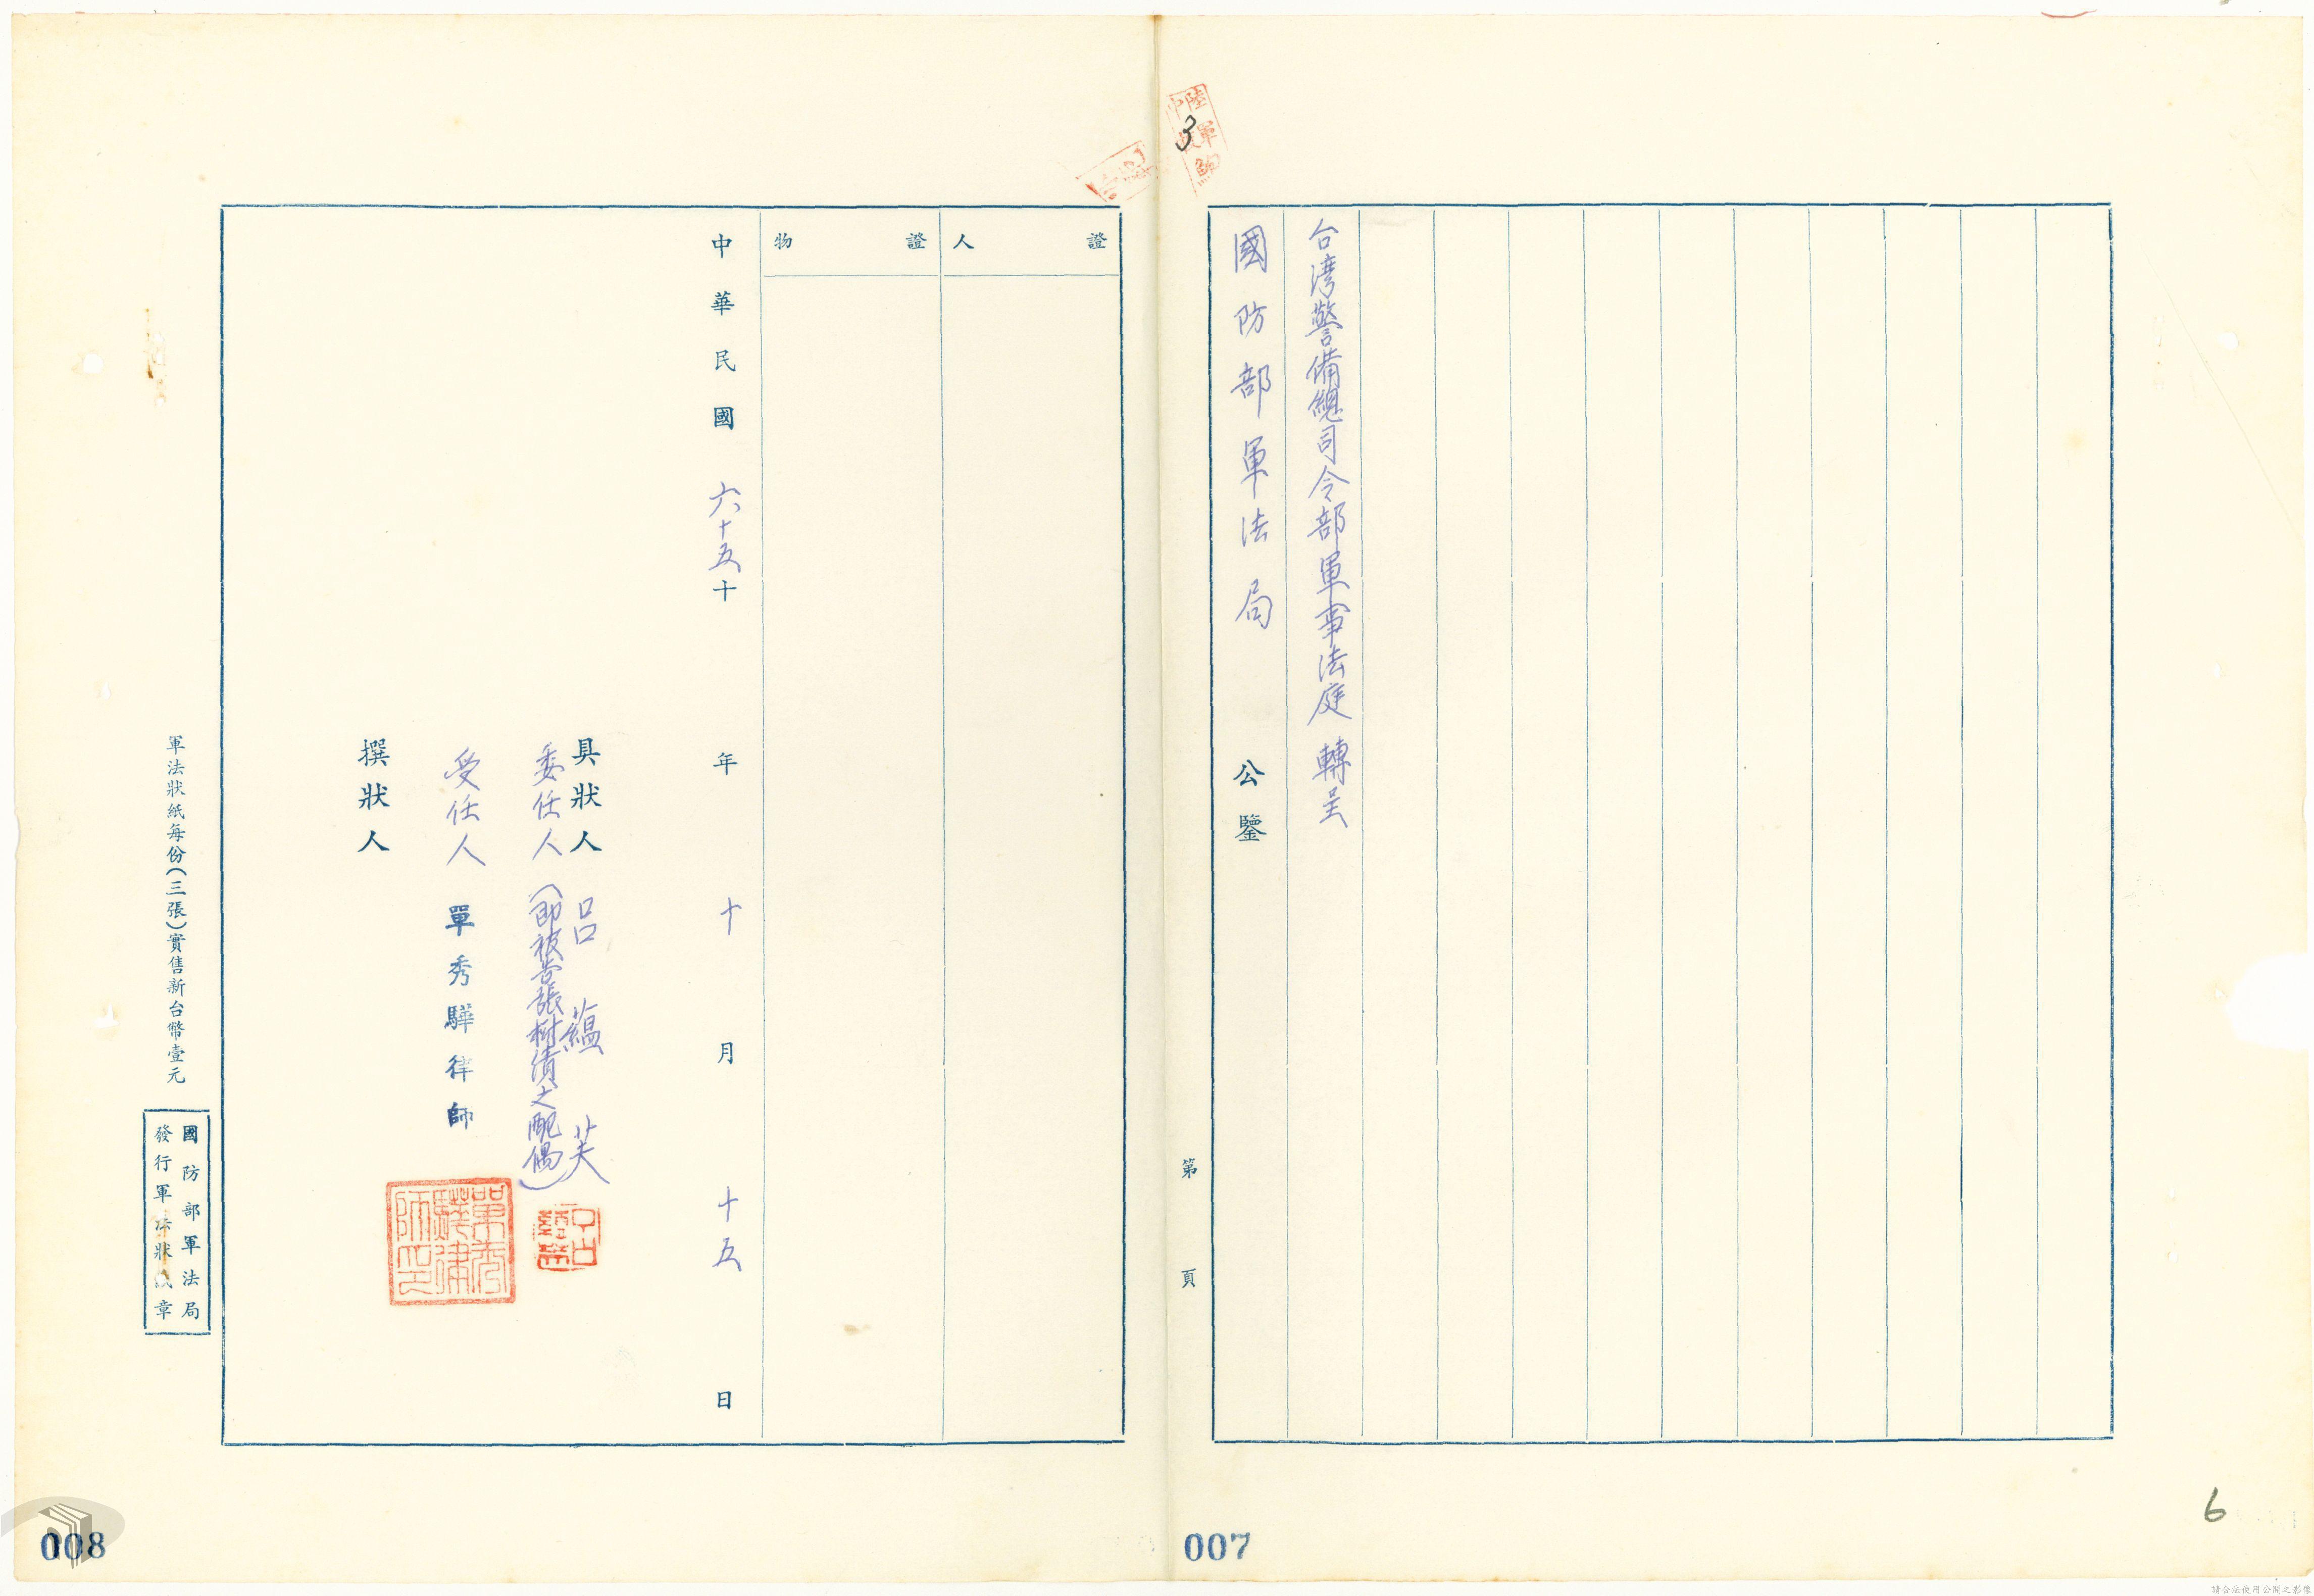 台湾警備總司令部軍事法庭 轉呈
國防部軍法局 公鑒
第 頁
3
證人
證物
中華民國六十五十年十月十五日
具狀人 呂蘊芙
委任人(即被告張樹濆之配偶)
受任人 單秀驊律師
單秀驊律師印
撰狀人
軍法狀紙每份(三張)實售新台幣壹元
國防部軍法局
發行軍法狀紙章
008
007
6
請合法使用公開之影像